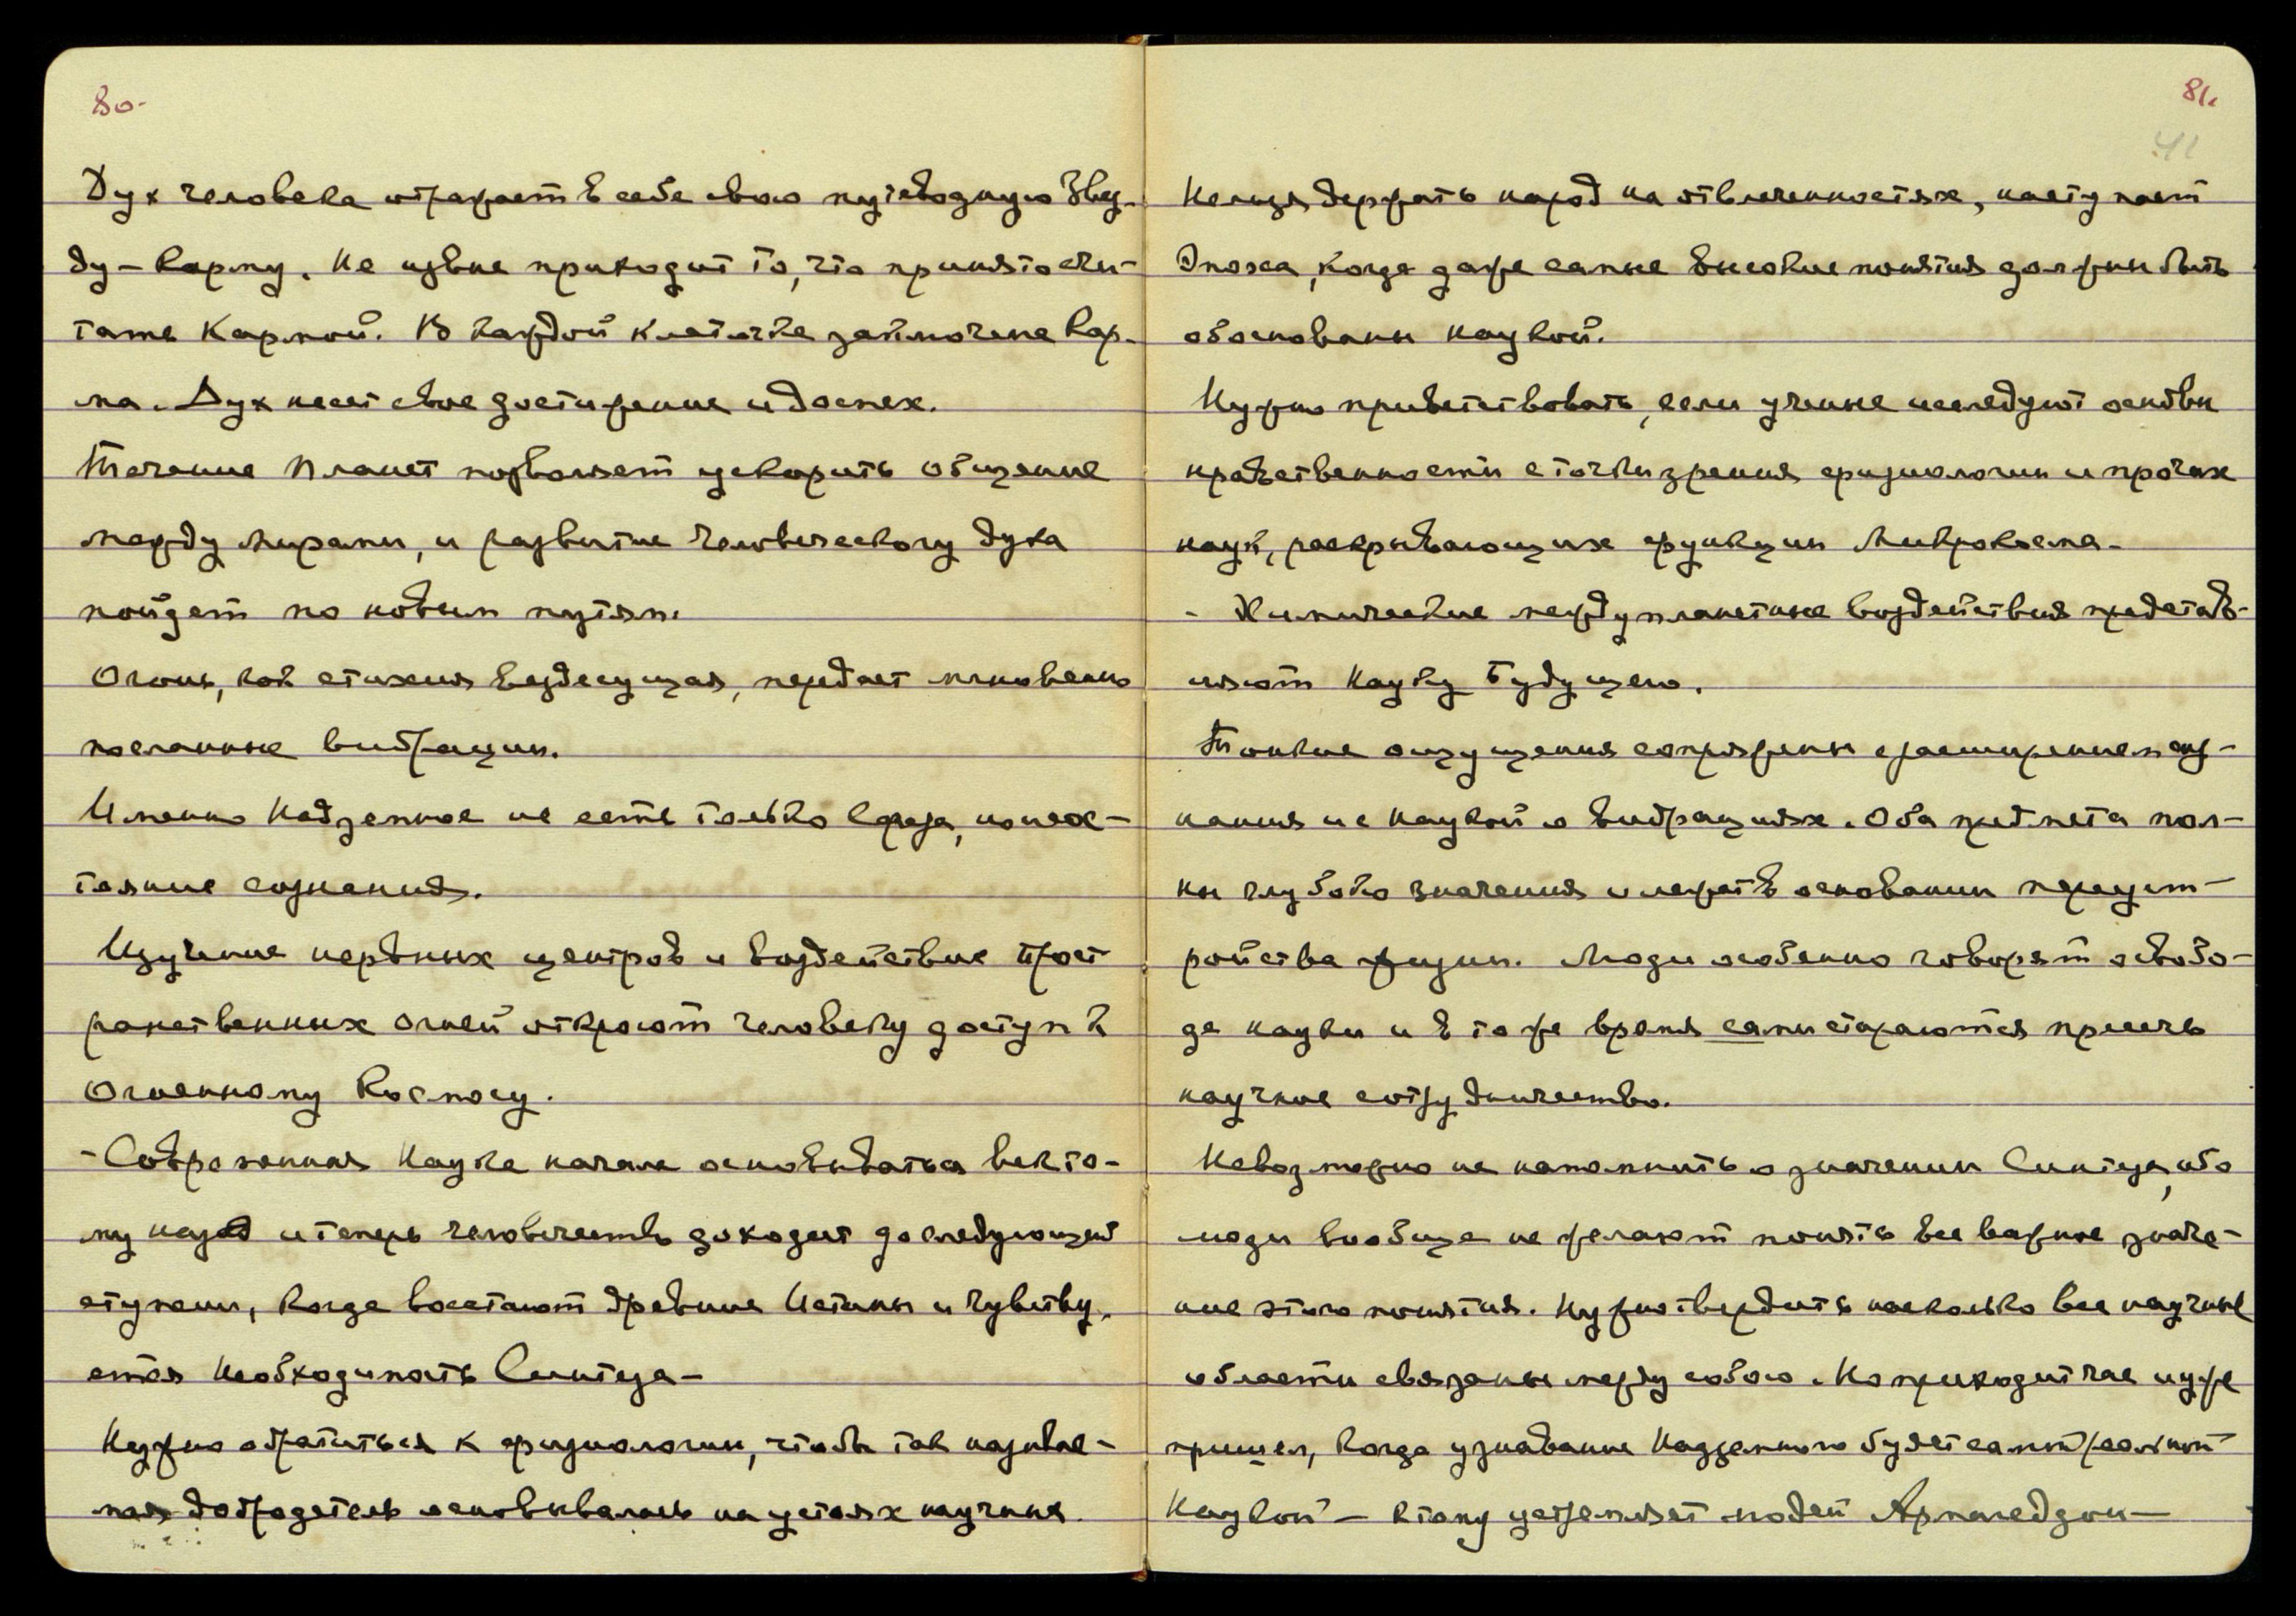 80.
Дух человека отражает в себе свою путеводную Звез-
ду – Карму. Не извне приходит то, что принято счи-
тать Кармой. В каждой клеточке заключена Кар-
ма. Дух несет свое достижение и доспех.
Течение Планет позволяет ускорить общение
между Мирами, и развитие человеческому духа
пойдет по новым путям.
Огонь, как стихия вездесущая, передает мгновенно
посланные вибрации.
Именно Надземное не есть только среда, но и сос-
тояние сознания.
Изучение нервных центров и воздействие Прост
ранственных Огней откроют человеку доступ к
Огненному Космосу.
- Современная Наука начала основывать век то-
му назад и теперь человечество доходит до следующей
ступени, когда восстают древние Истины и чувству.
ется Необходимость Синтеза –
Нужно обратиться к физиологии, чтобы так называе-
мая добродетель основывалась на устоях научных
81.
41
Нельзя держать народ на отвлеченностях, наступает
Эпоха, когда даже самые высокие понятия должны быть
обоснованы наукой.
Нужно приветствовать, если ученые исследуют основы
нравственности с точки зрения физиологии и прочих
наук, раскрывающих функции Микрокосма –
- Химические междупланетные воздействия представ-
ляют Науку Будущего.
Тонкие ощущения сопряжены с расширением соз-
нания и с наукой о вибрациях. Оба предмета пол-
ны глубоко значения и лежат в основании переуст-
ройства жизни. Люди особенно говорят о свобо-
де науки и в то же время сами стараются пресечь
научное сотрудничество.
Невозможно не напомнить о значении Синтеза, ибо
люди вообще не желают понять все важное значе-
ние этого понятия. Нужно твердить насколько все научные
области связаны между собою. Но приходит час и уже
пришел, когда узнавание Надземного будет самой реальной
Наукой – к тому устремляет людей Армагеддон –